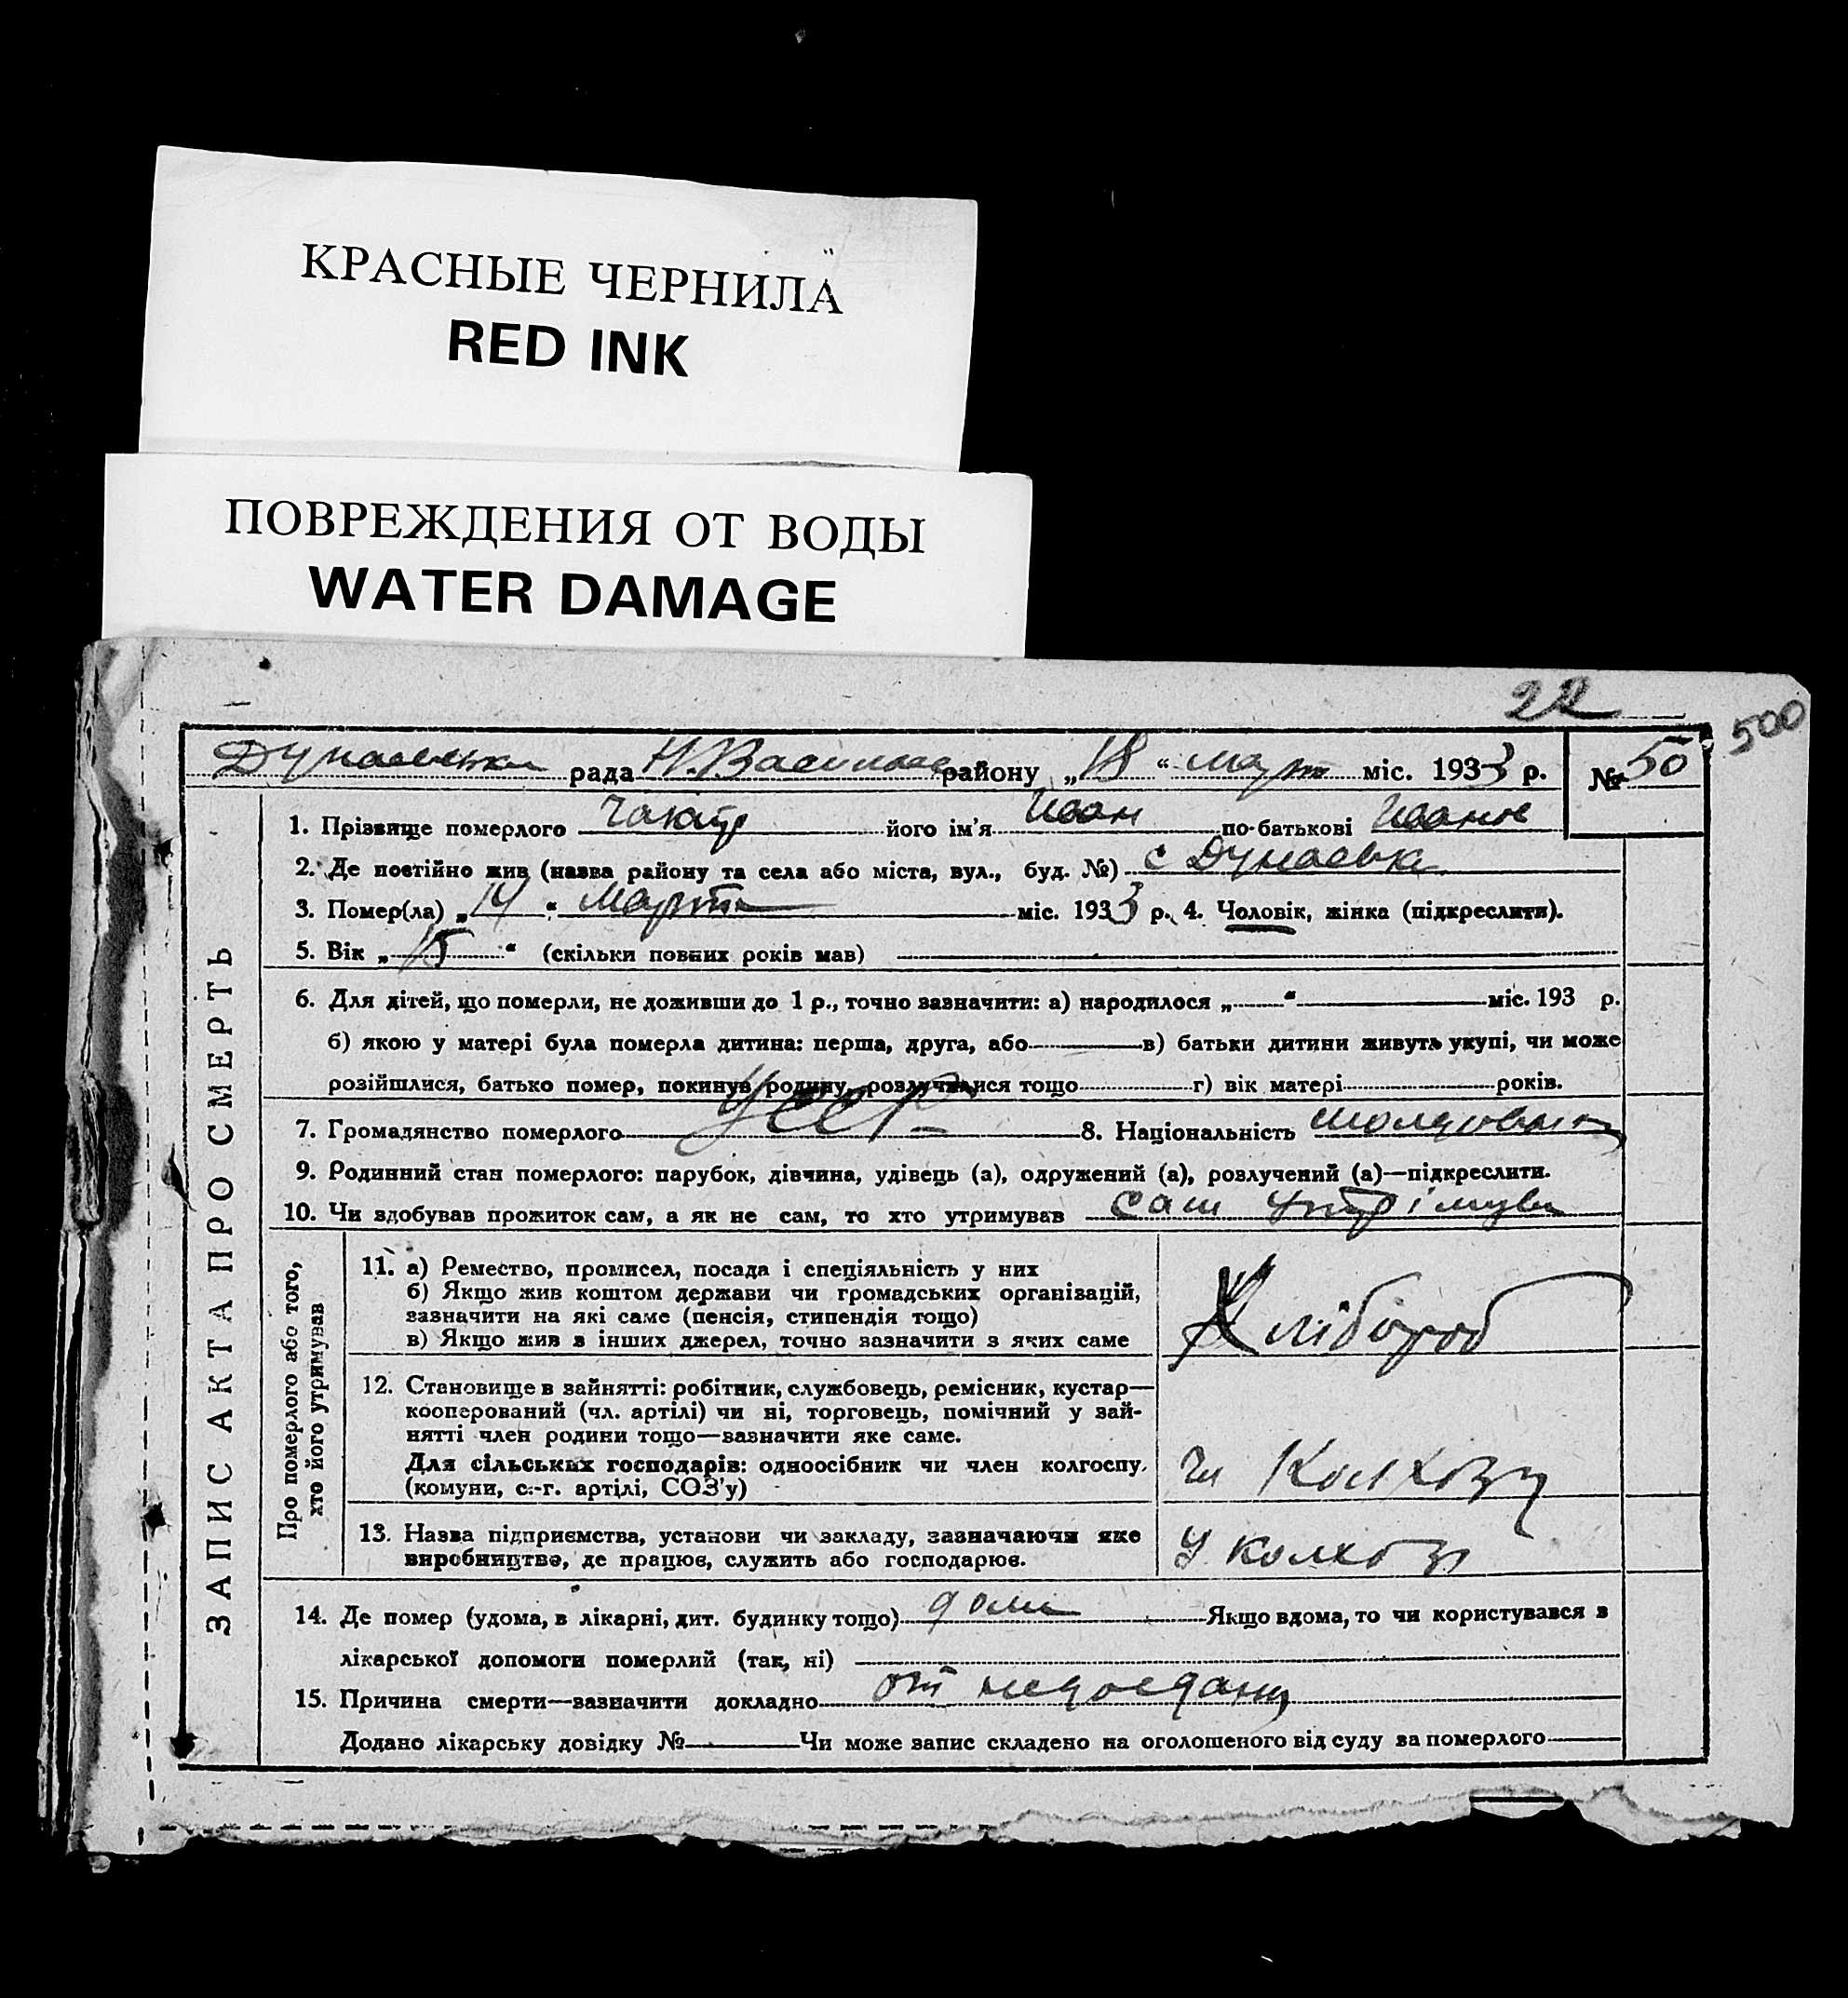 КРАСНЫЕ ЧЕРНИЛА
RED INK
ПОВРЕЖДЕНИЯ ОТ ВОДЫ
WATER DAMAGE
22
500
Дунаевська рада Н.Василівс району „18“ март міс. 1933 р. № 50
ЗАПИС АКТА ПРО СМЕРТЬ
1. Прізвище померлого його ім'я Иван по-батькові Иванов
2. Де постійно жив (назва району та села або міста, вул., буд. №) с Дунаевка
3. Помер(ла) „14“ марта міс. 1933 р. 4. Чоловік, жінка (підкреслити).
5. Вік „15“ (скільки повних років мав)
6. Для дітей, що померли, не доживши до 1 р., точно зазначити: а) народилося „ “ міс. 193 р.
б) якою у матері була померла дитина: перша, друга, або в) батьки дитини живуть укупі, чи може
розійшлися, батько помер, покинув родину, розлучилися тощо г) вік матері років.
7. Громадянство померлого УССР 8. Національність
9. Родинний стан померлого: парубок, дівчина, удівець (а), одружений (а), розлучений (а)—підкреслити.
10. Чи здобував прожиток сам, а як не сам, то хто утримував сам
Про померлого або того,
хто його утримував
11. а) Ремество, промисел, посада і спеціяльність у них
б) Якщо жив коштом держави чи громадських організацій,
зазначити на які саме (пенсія, стипендія тощо)
в) Якщо жив з інших джерел, точно зазначити з яких саме
Хлібороб
12. Становище в зайнятті: робітник, службовець, ремісник, кустар—
кооперований (чл. артілі) чи ні, торговець, помічний у зай-
нятті член родини тощо—зазначити яке саме.
Для сільських господарів: одноосібник чи член колгоспу,
(комуни, с.-г. артілі, СОЗ'у)
Чл Колхозу
13. Назва підприємства, установи чи закладу, зазначаючи яке
виробництво, де працює, служить або господарює.
У колхозі
14. Де помер (удома, в лікарні, дит. будинку тощо) дома Якщо вдома, то чи користувався з
лікарської допомоги померлий (так, ні)
15. Причина смерти—зазначити докладно от недоедания
Додано лікарську довідку № Чи може запис складено на оголошеного від суду за померлого